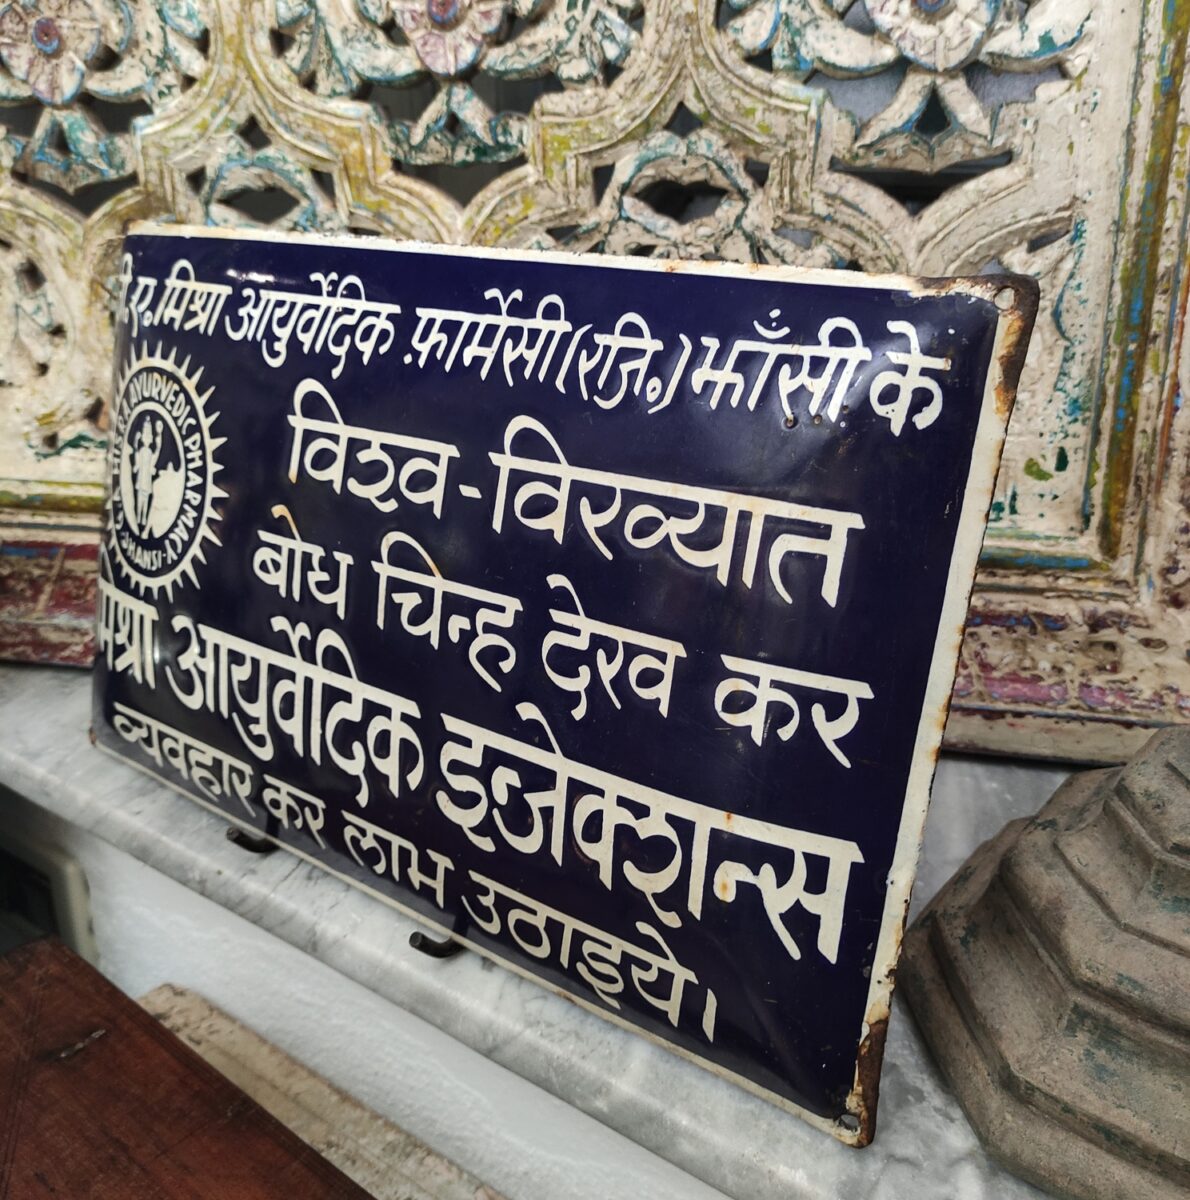 जी.ए.मिश्रा आयुर्वेदिक फ़ार्मेसी(रजि.)झाँसी के
विश्व-विख्यात
बोध चिन्ह देख कर
मिश्रा आयुर्वेदिक इन्जेक्शन्स
व्यवहार कर लाभ उठाइये।
G.A. MISRA AYURVEDIC PHARMACY
JHANSI